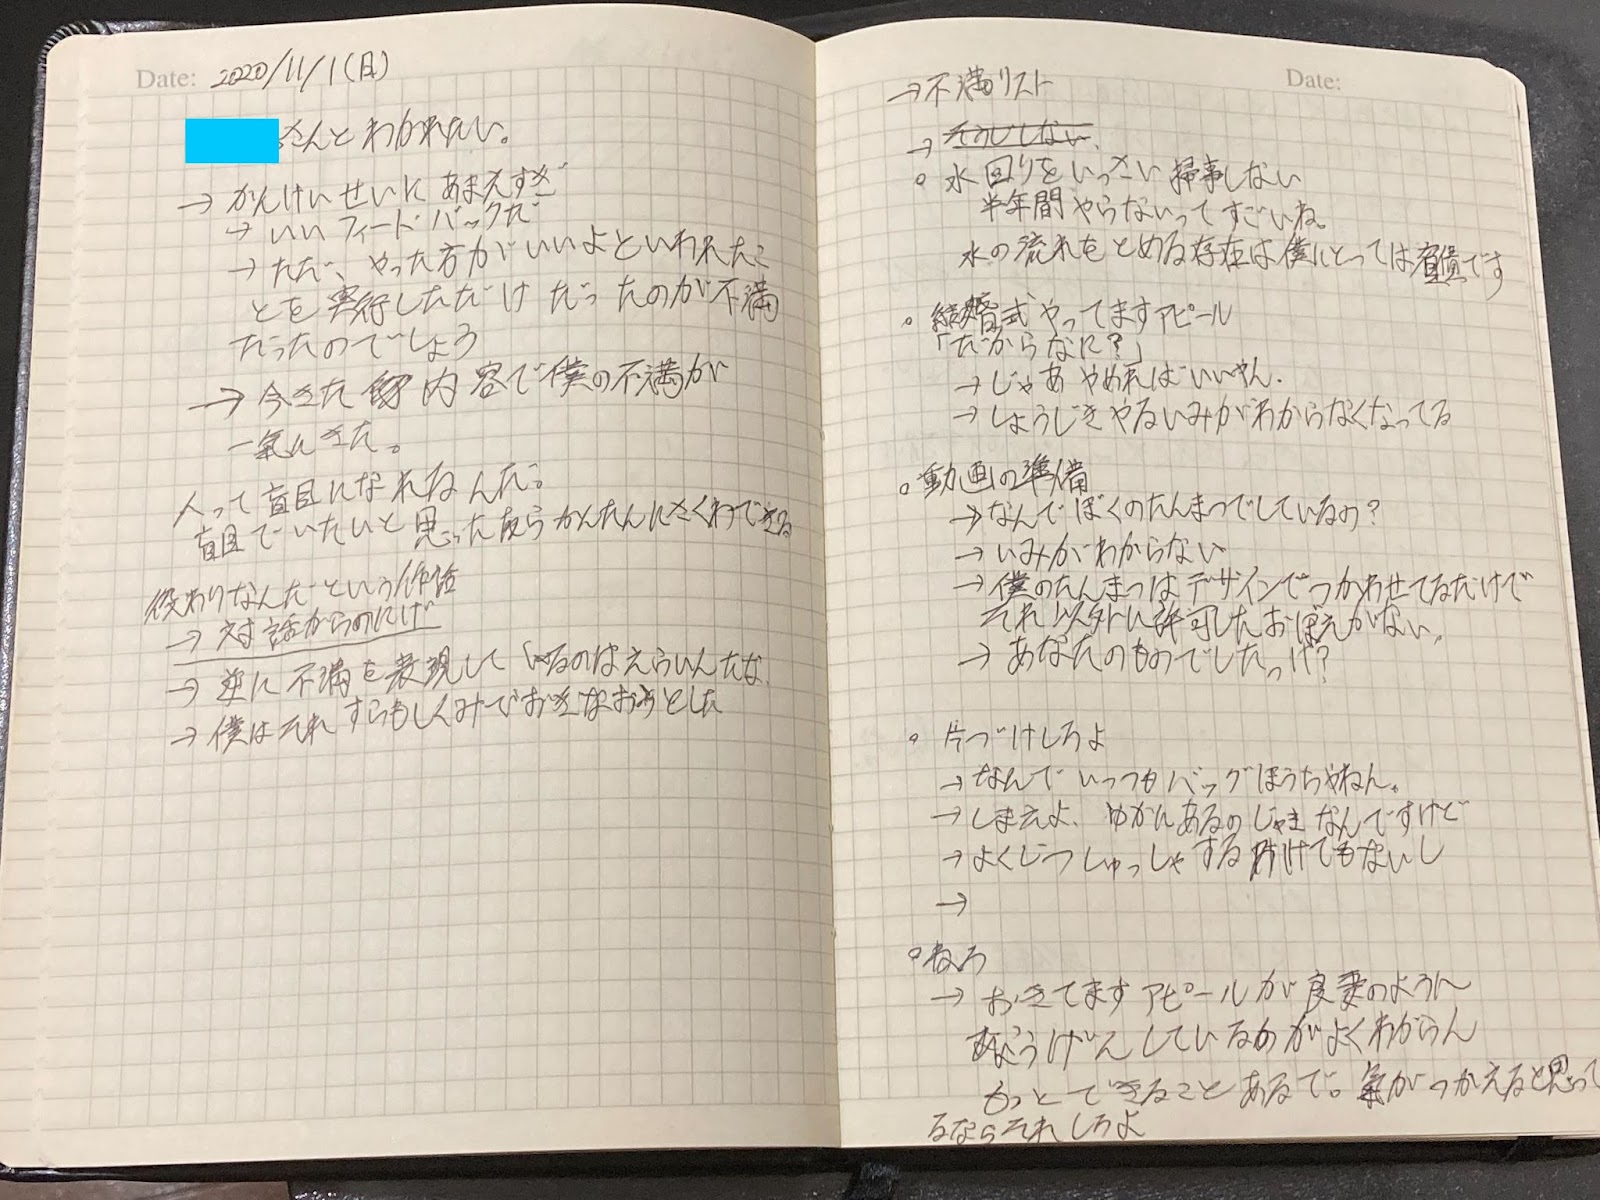 Date: 2020/11/1(日)
さんとわかれたい。
→かんけいせいにあまえすぎ
→いいフィードバックだ
→ただ、やった方がいいよといわれたこ
とを実行しただけだったのが不満
だったのでしょう
→今きた内容で僕の不満が
一氣にきた。
人って盲目になれるんだ。
盲目でいたいと思ったならかんたんにさくわできる
役わりなんだという
→対話からのにげ
→逆に不満を表現しているのはえらいんだな
→僕はそれすらもしくみでおきなおうとした
Date:
→不満リスト
→そうじしない
○水回りをいっさい掃事しない
半年間やらないってすごいね。
水の流れをとめる存在は僕にとっては負債です
○結婚式やってますアピール
「だからなに?」
→じゃあやめればいいやん.
→しょうじきやるいみがわからなくなってる
○動画の準備
→なんでぼくのたんまつでしているの?
→いみがわからない
→僕のたんまつはデザインでつかわせてるだけで
それ以外に許可したおぼえがない.
→あなたのものでしたっけ?
○片づけしろよ
→なんでいっつもバッグほうちやねん。
→しまえよ、ゆかにあるのじゃまなんですけど
→よくじつしゅっしゃするわけでもないし
→
○ねろ
→おきてますアピールが良妻のように
ひょうげんしているのがよくわからん
もっとできることあるで。氣がつかえると思って
るならそれしろよ